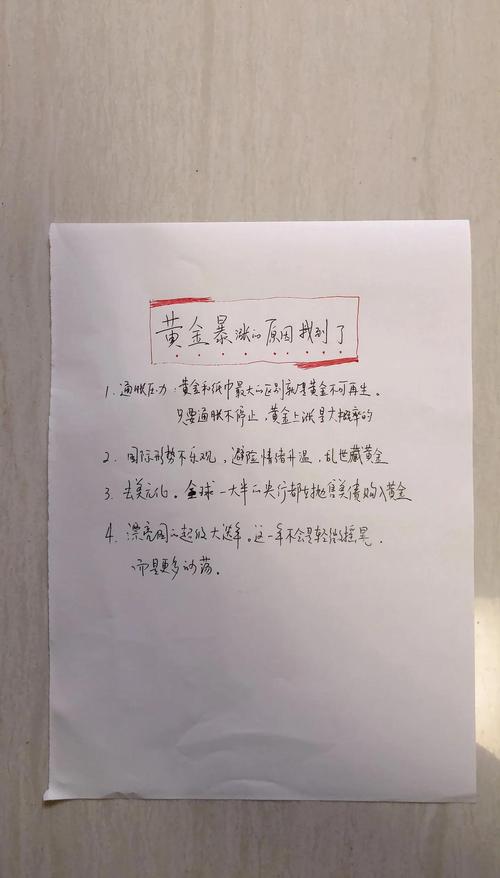 黄金暴涨的原因找到了
1. 通胀压力:黄金和纸币最大的区别就是黄金不可再生。
只要通胀不停止,黄金上涨是大概率的
2. 国际形势不乐观,避险情绪升温,乱世藏黄金
3. 去美元化。全球一大半的央行都在抛售美债购入黄金
4. 漂亮国的超级大选年。这一年不会是轻微摇晃,
而是更多动荡。